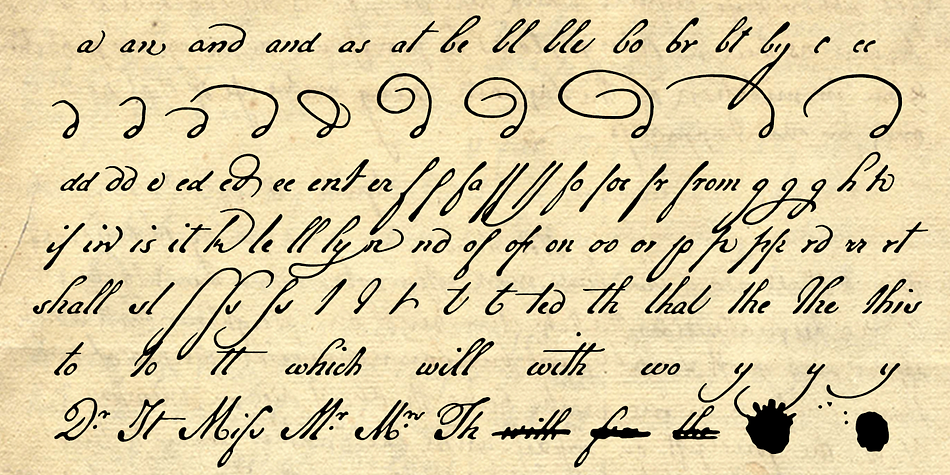 a an and and as at be bl ble bo br bt by c cc
d d d d d d d d d d
dd dd e ed ed ee ent er f f fa ff ff fo for fr from g g g h h
if in is it k le ll ly n nd of of on oo or p p pp rd rr rt
shall sl ſ ſs ſs t t t t t ted th that the the this
to to tt which will with wo y y y
Dr. It Miſs Mr. Mrs. Th with from the